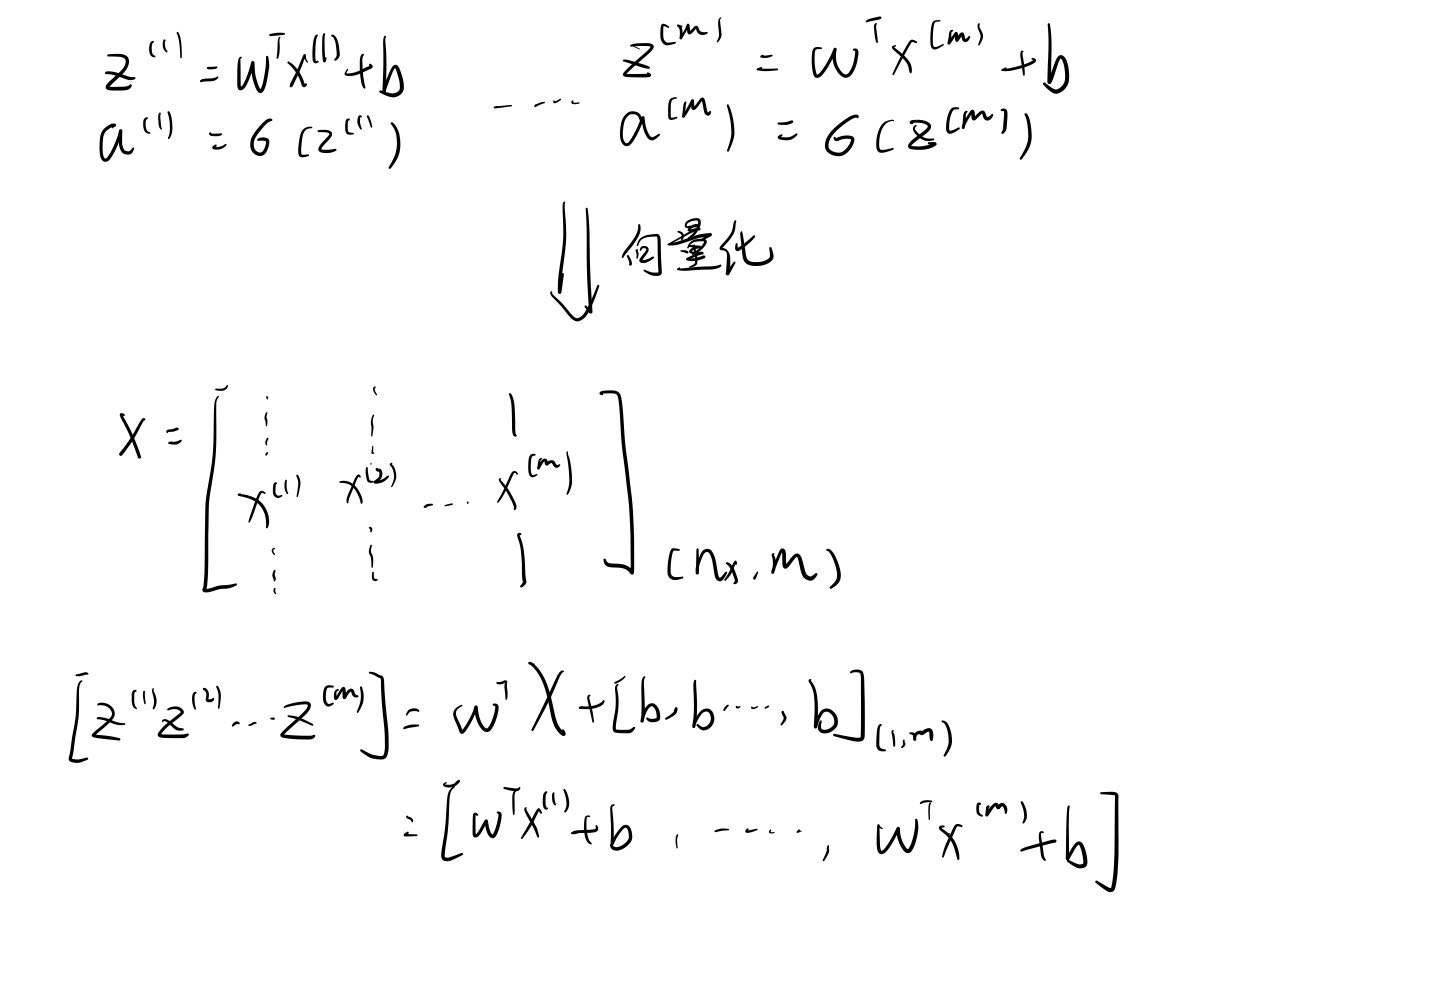 z⁽¹⁾ = wᵀx⁽¹⁾+b ----- z⁽ᵐ⁾ = wᵀx⁽ᵐ⁾+b
a⁽¹⁾ = σ(z⁽¹⁾) a⁽ᵐ⁾ = σ(z⁽ᵐ⁾)
⇓ 向量化
X = [x⁽¹⁾ x⁽²⁾ ... x⁽ᵐ⁾] (nₓ, m)
[z⁽¹⁾ z⁽²⁾ ... z⁽ᵐ⁾] = wᵀX + [b, b ..., b] (1, m)
= [wᵀx⁽¹⁾+b , ..... , wᵀx⁽ᵐ⁾+b]